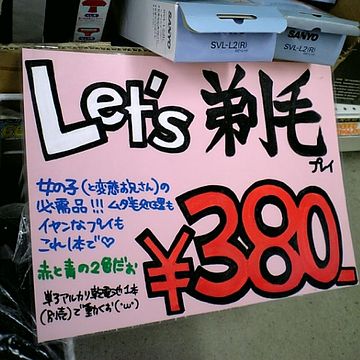 SANYO
SVL-L2(R)
SVL-L2(R)
Let's 剃毛
プレイ
女の子(と変態お兄さん)の
必需品!!! ムダ毛処理も
イヤンなプレイも
これ1本で♡
赤と青の2色だお
単3アルカリ乾電池1本
(別売)で動くお(･ω･)
¥380-